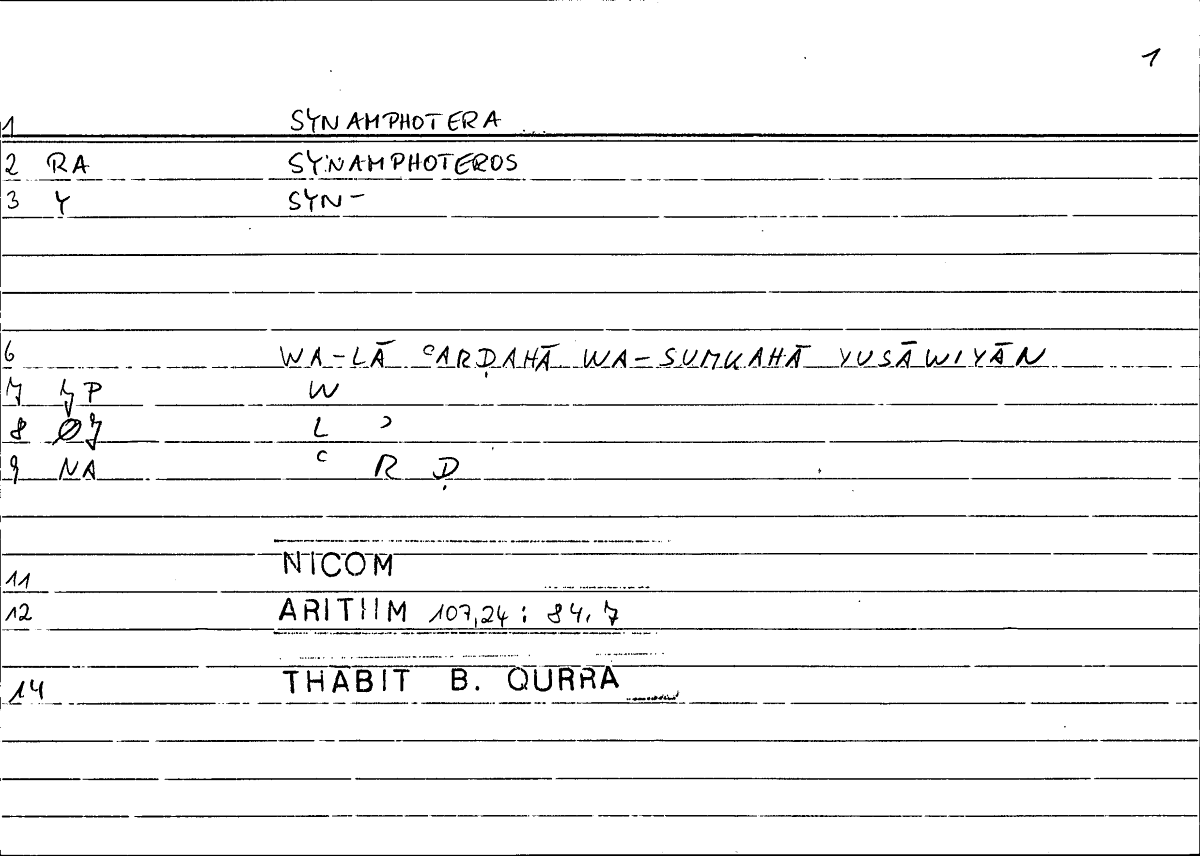 1
1 SYNAMPHOTERA
2 RA SYNAMPHOTEROS
3 Y SYN-
6 WA-LĀ ʿARḌAHĀ WA-SUMKAHĀ YUSĀWIYĀN
7 P W
8 L ʾ
9 NA ʿ R Ḍ
11 NICOM
12 ARITHM 107,24 : 84,7
14 THABIT B. QURRA